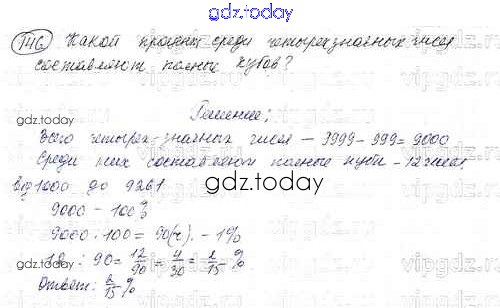 gdz.today
146 Какой процент среди четырехзначных чисел
составляют полные кубы?
gdz.today
Решение:
gdz.today
Всего четырех-значных чисел – 9999 - 999 = 9000
Среди них составляют полные кубы - 12 чисел
от 1000 до 9261
gdz.today
9000 - 100%
9000 : 100 = 90(ч). - 1%
12 : 90 = 12/90 = 4/30 = 2/15 %
gdz.today
Ответ: 2/15 %